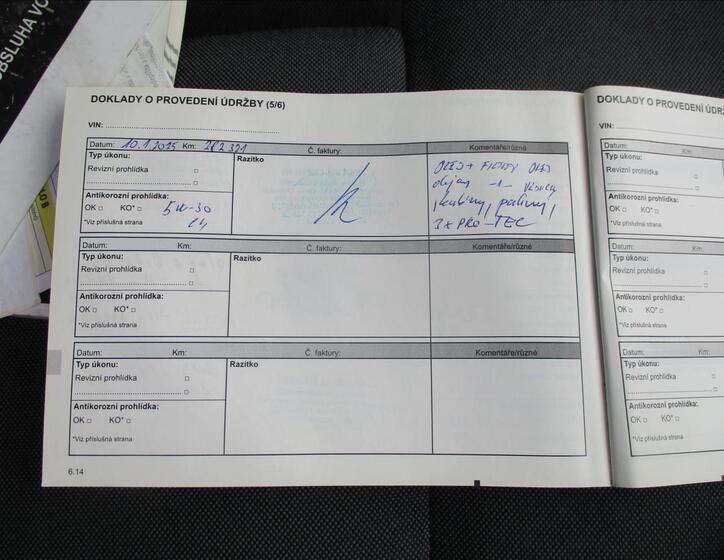 OBSLUHA VO
DOKLADY O PROVEDENÍ ÚDRŽBY (5/6)
VIN:
Datum: 10.1.2025 Km: 282 321 Č. faktury: Komentáře/různé
Typ úkonu:
Revizní prohlídka
Antikorozní prohlídka:
OK KO* 5W-30
C4
*Viz příslušná strana
Razítko
OLEJ + FILTRY OLEJ
kabiny, palivový,
3x PRO-TEC
Datum: Km: Č. faktury: Komentáře/různé
Typ úkonu:
Revizní prohlídka
Antikorozní prohlídka:
OK KO*
*Viz příslušná strana
Razítko
Datum: Km: Č. faktury: Komentáře/různé
Typ úkonu:
Revizní prohlídka
Antikorozní prohlídka:
OK KO*
*Viz příslušná strana
Razítko
6.14
DOKLADY O PROVEDENÍ ÚDRŽ
VIN:
Datum: Km:
Typ úkonu:
Revizní prohlídka
Antikorozní prohlídka:
OK KO*
*Viz příslušná strana
Datum: Km:
Typ úkonu:
Revizní prohlídka
Antikorozní prohlídka:
OK KO*
*Viz příslušná strana
Datum: Km:
Typ úkonu:
Revizní prohlídka
Antikorozní prohlídka:
OK KO*
*Viz příslušná strana